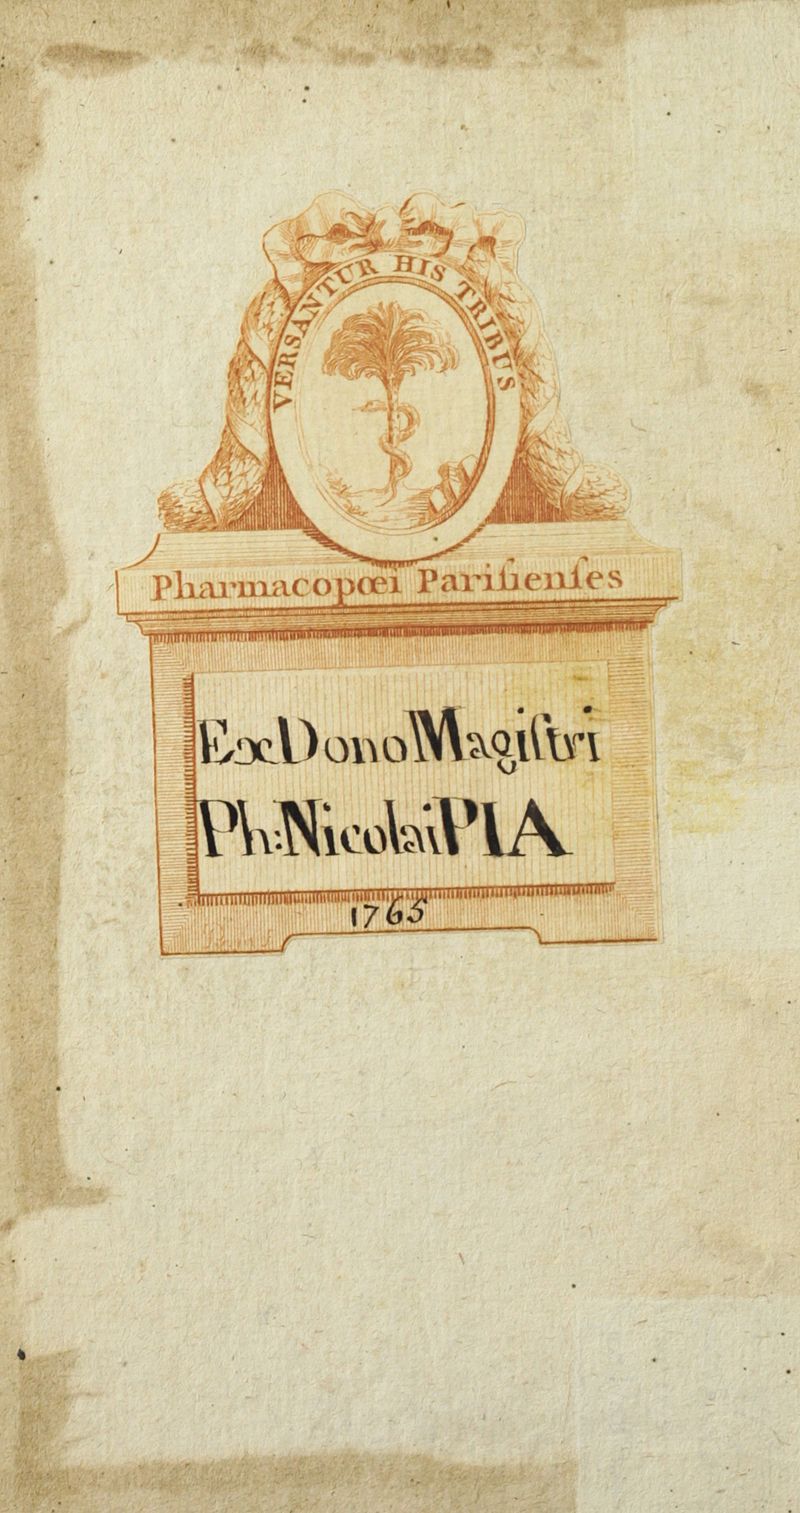 VERSANTUR HIS TRIBUS
Pharmacopœi Pariſienſes
Ex Dono Magiſtri
Ph: Nicolai PIA
1765